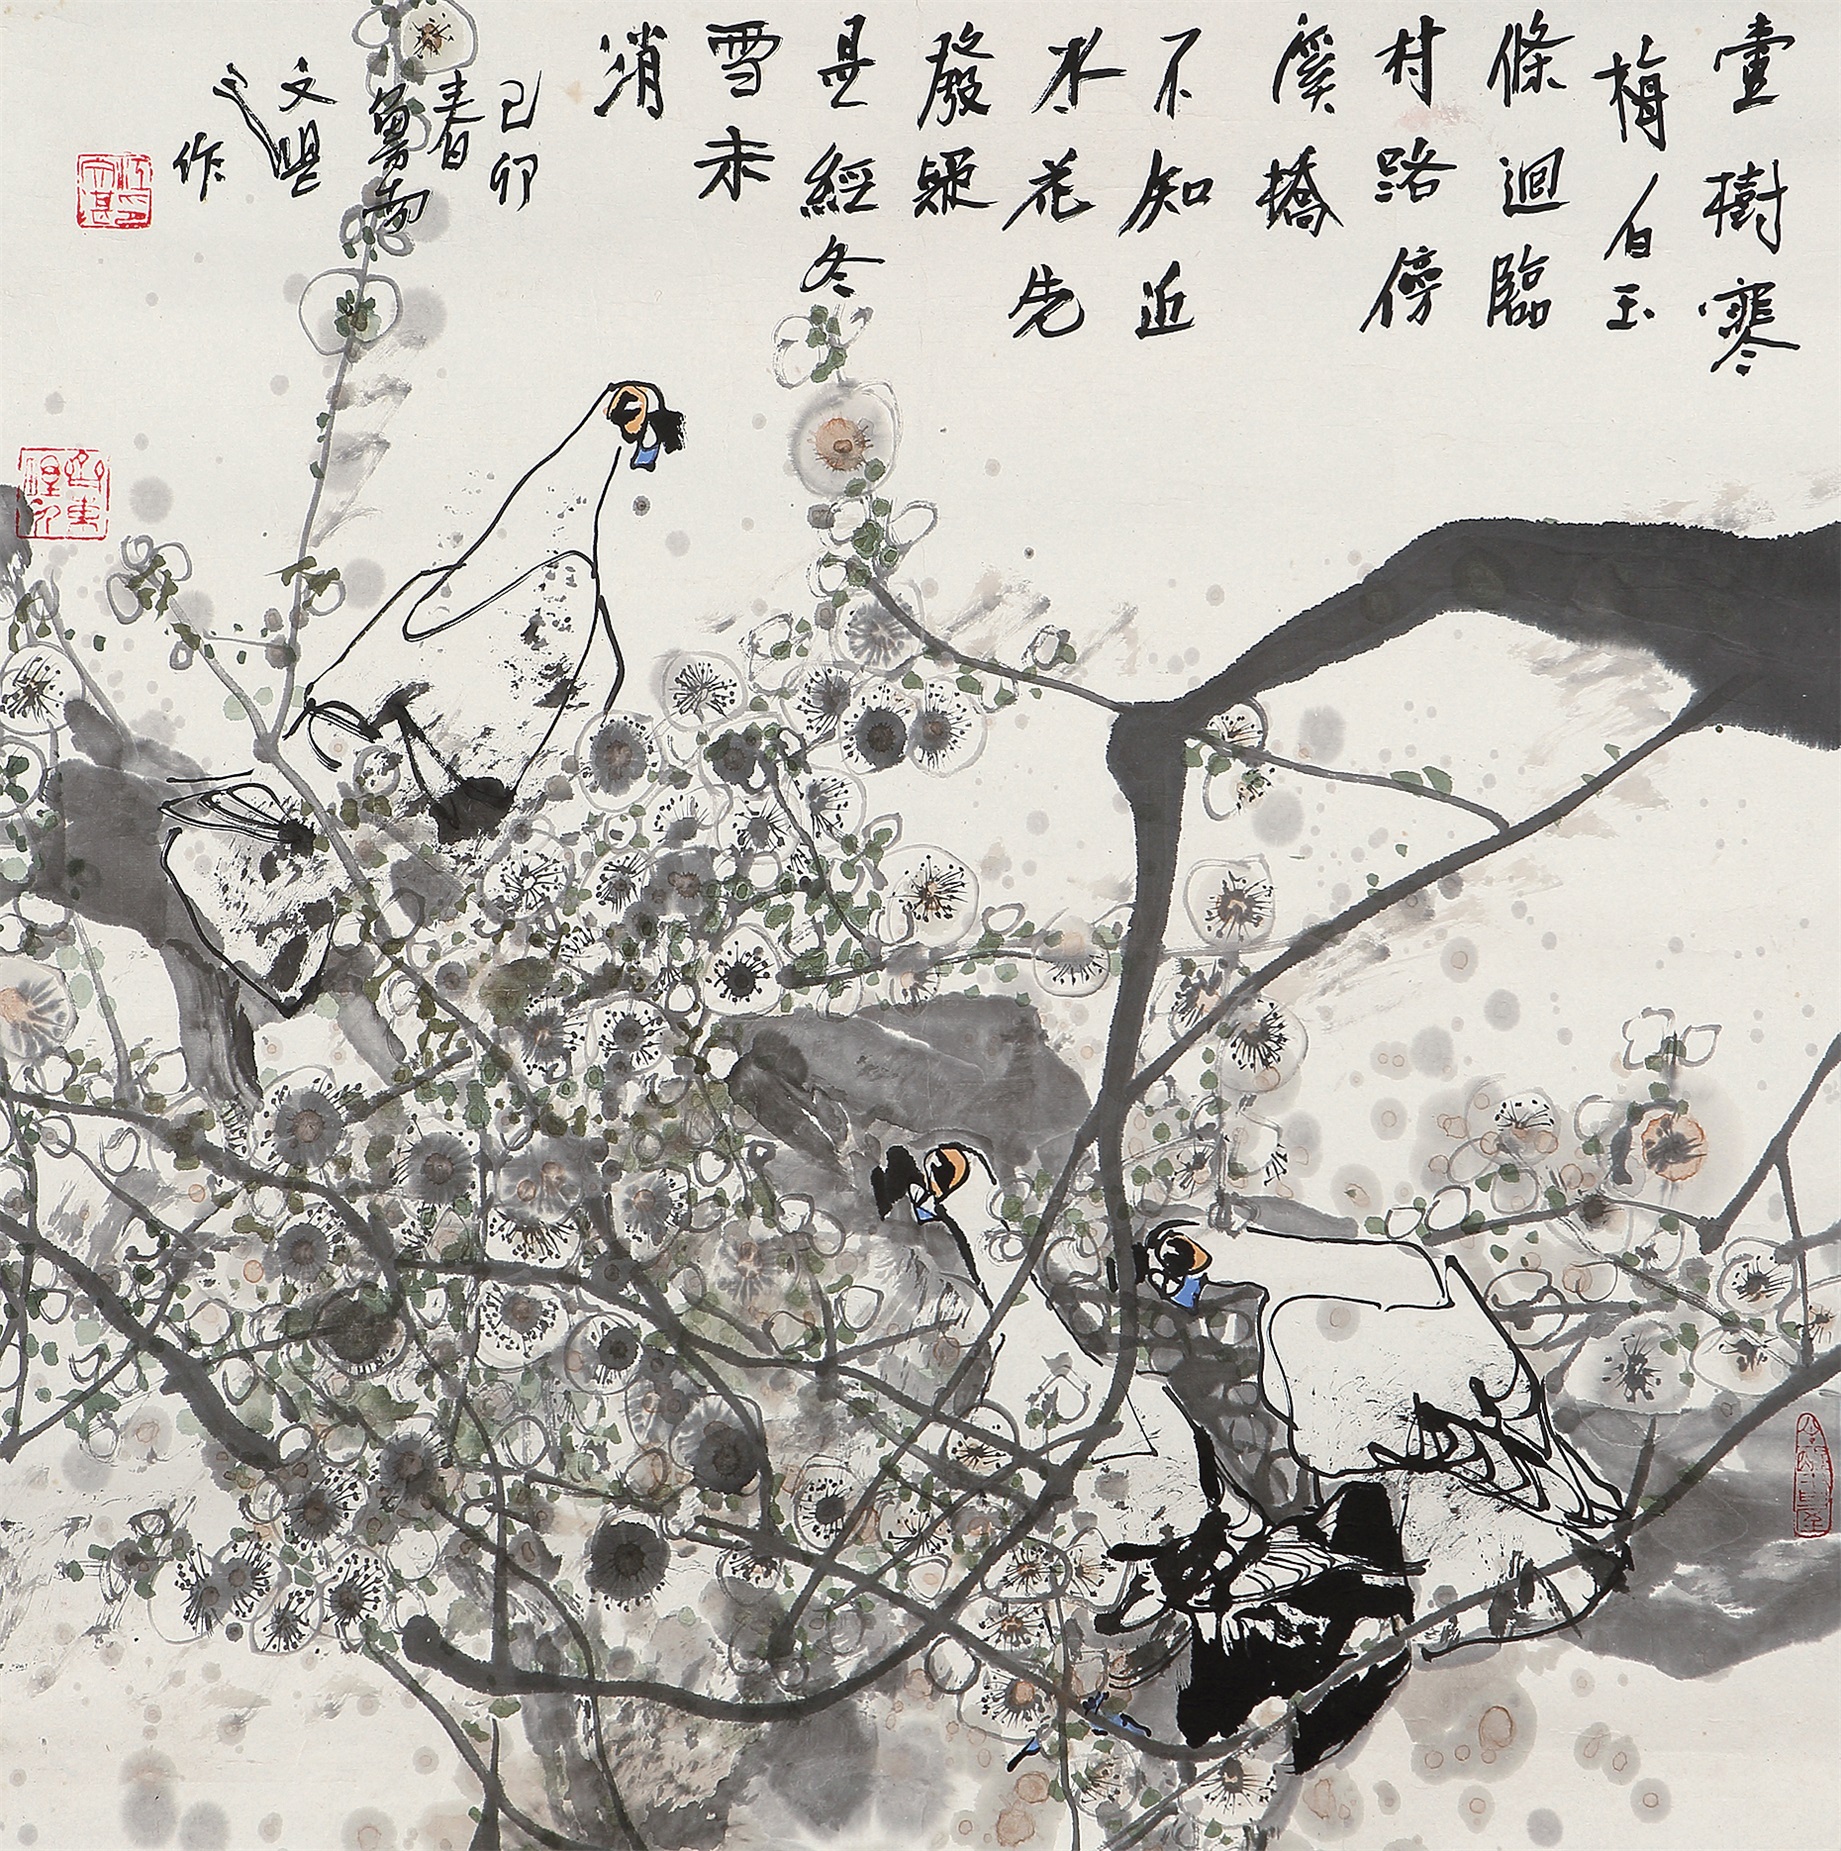 壹樹寒
梅白玉
條迴臨
村路傍
溪橋
不知近
水花先
發疑
是經冬
雪未
消
己卯
春
文湛
作
江文湛印